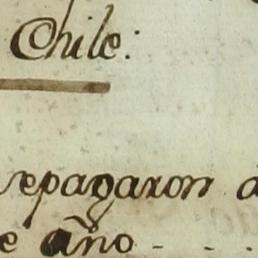 Chile:
se pagaron
año